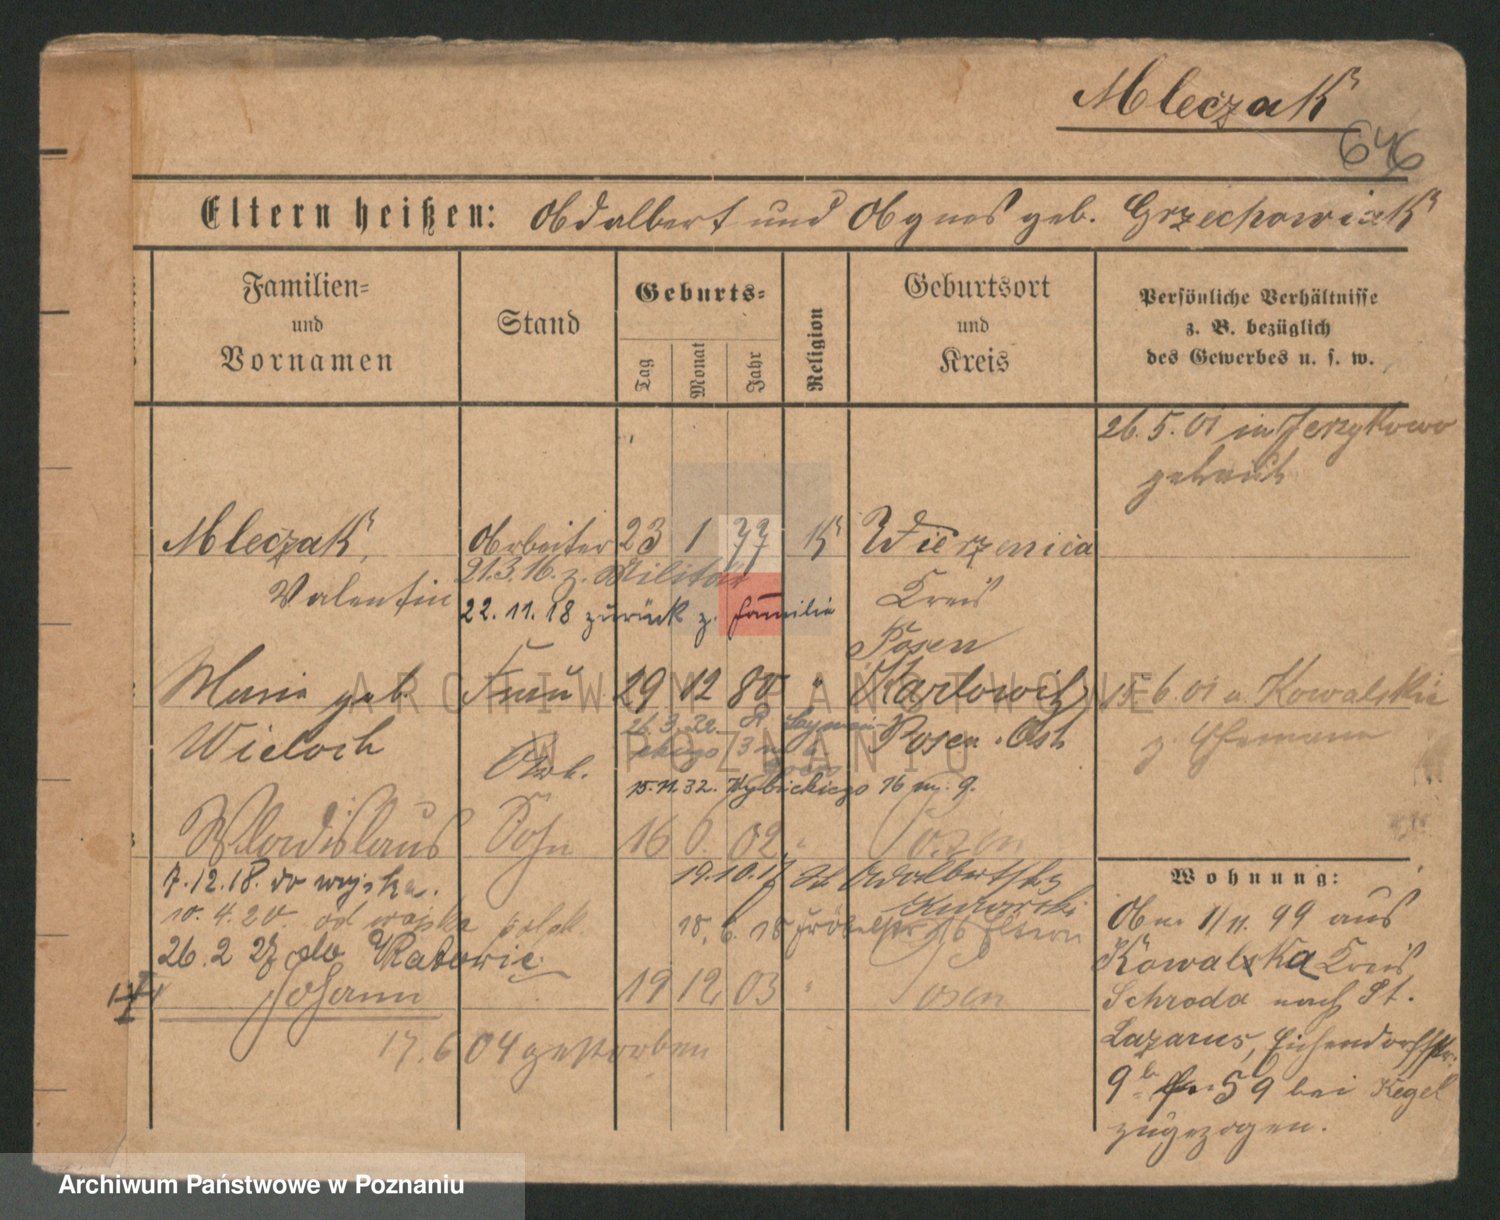 Mleczak
646
Eltern heißen: Adalbert und Agnes geb. Grzechowiak
Familien-
und
Vornamen
Stand
Geburts-
Tag
Monat
Jahr
Religion
Geburtsort
und
Kreis
Persönliche Verhältnisse
z. B. bezüglich
des Gewerbes u. s. w.
26.5.01 in Jerzykowo
getraut
Mleczak, Arbeiter 23 1 77 K Wierzenica
Valentin
21.3.16. z. Militär
22.11.18 zurück z. Familie
Kreis
Posen
Marie geb. Frau 29 12 80 " Karlowitz
15.6.01 a. Kowalskie
z. Ehemann
Wieloch
Posen. Ost
26.3.20.
Arb.
15.11.32. Wybickiego 16 m. 9.
Wladislaus Sohn 16 6. 02 " Posen
7.12.18. do wojska.
19.10.17 Adalbertstr
10.4.20. od wojska polsk
18.6.18 Fröbelstr Eltern
26.2 27 do Ratowic
Johann 19 12 03 " Posen
17.6 04 gestorben
Wohnung:
Am 1/11. 99 aus
Kowalska Kreis
Schroda nach St.
Lazarus, Eichendorffstr.
9 59 bei Kegel
zugezogen.
ARCHIWUM PAŃSTWOWE
W POZNANIU
Archiwum Państwowe w Poznaniu